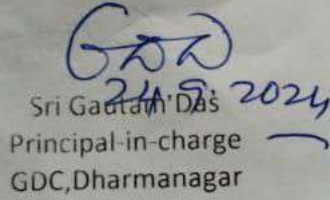 24.9.2024
Sri Gautam Das
Principal-in-charge
GDC,Dharmanagar